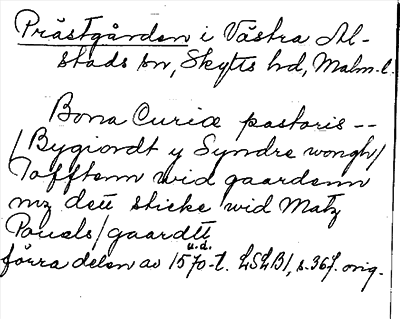 Prästgården i Västra Al-
stads sn, Skytts hd, Malm. l.
Bona Curiæ pastoris --
/Bygiordt y Syndre wongh/
Tofftenn wid gaardenn
mz dett sticke wid Matz
Pouels/gaardtt
u.d.
förra delen av 1570-t. LSLB1, s. 367. orig.